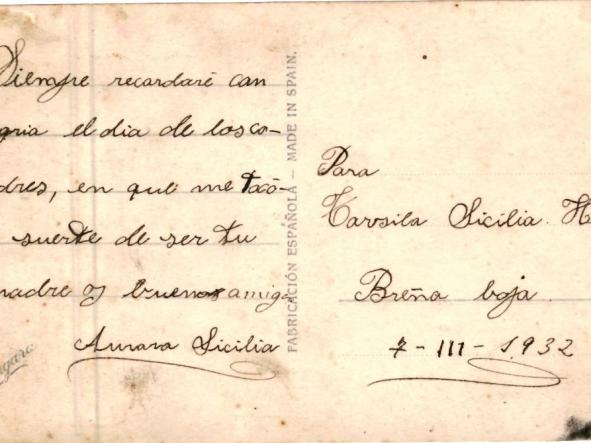 Siempre recordaré con
gria el dia de los co-
dres, en que me tocó
suerte de ser tu
madre y buena amiga
Aurora Sicilia
FABRICACIÓN ESPAÑOLA — MADE IN SPAIN.
Para
Tarsila Sicilia H
Breña baja
7-III-1932